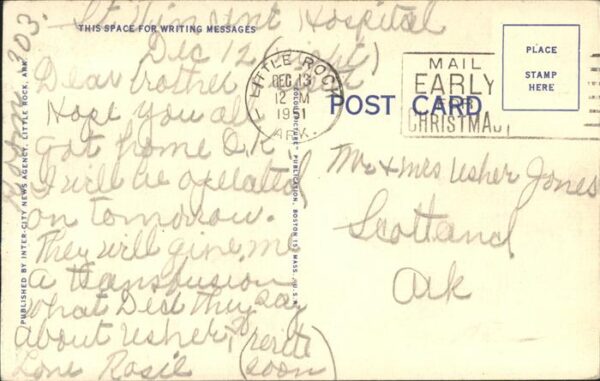 THIS SPACE FOR WRITING MESSAGES
St Vincent Hospital
Room 203.
Dec 12 (night)
Dear brother
Hope you all
got home O.K.
I will be operated
on tomorrow.
They will give me
a transfusion
What Did they say
about Usher?
Love Rosie
(write
soon)
PUBLISHED BY INTER-CITY NEWS AGENCY, LITTLE ROCK, ARK.
PUBLICATION, BOSTON 15, MASS., U.S.A.
LITTLE ROCK
DEC 13
12 M
1951
ARK.
MAIL
EARLY
FOR
CHRISTMAS
POST CARD
PLACE
STAMP
HERE
Mr + Mrs Usher Jones
Scotland
Ark